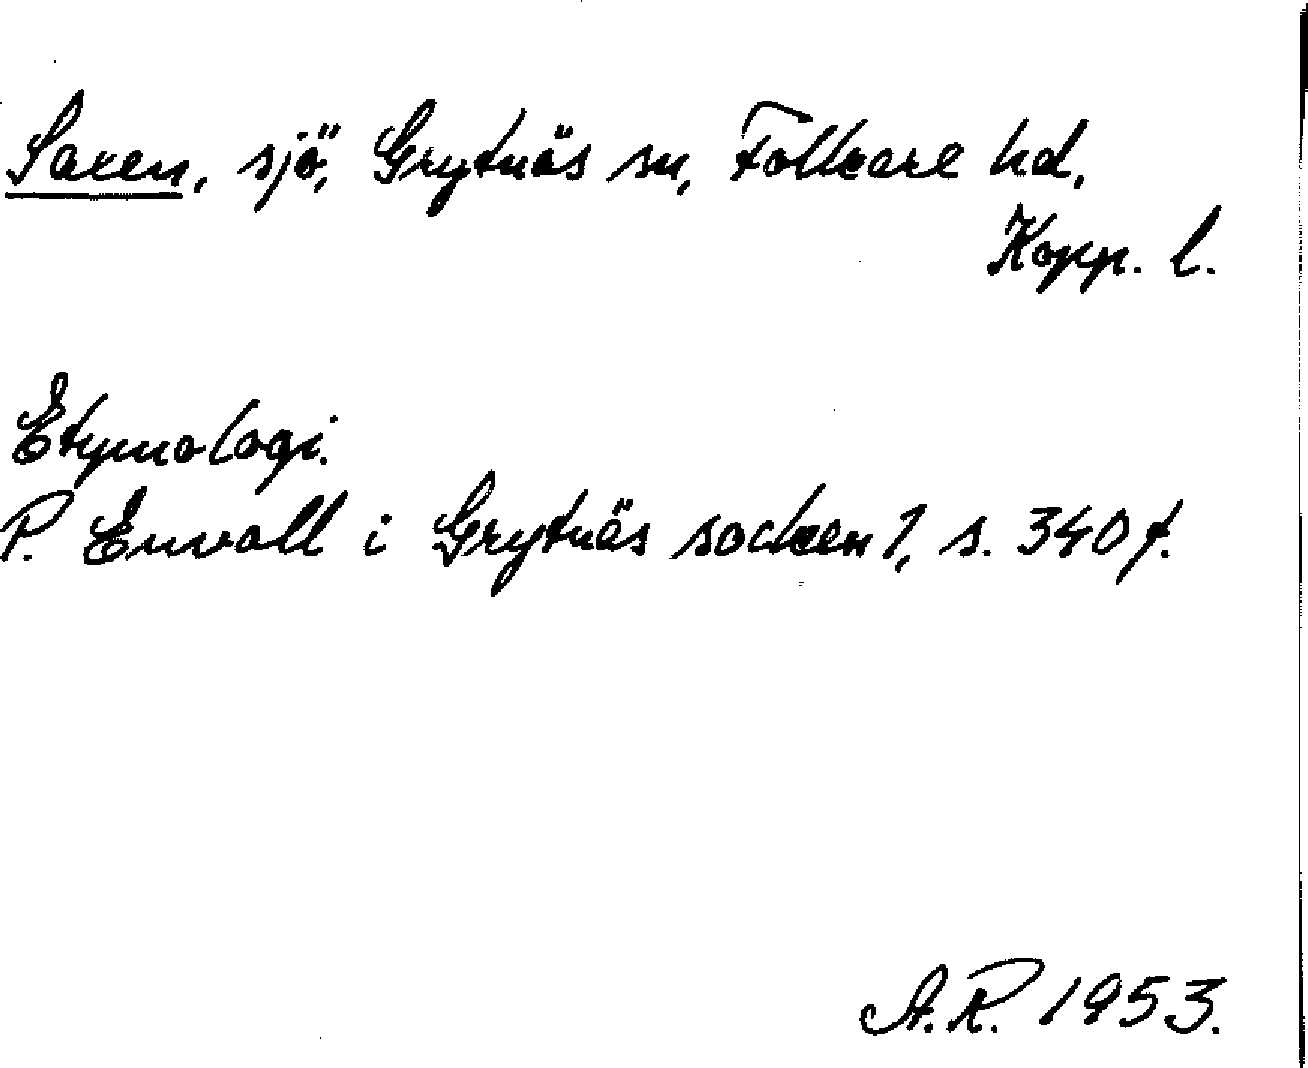 Saxen, sjö, Grytnäs sn, Folkare hd,
Kopp. l.
Etymologi.
P. Envall i Grytnäs socken 1, s. 340 f.
A.R. 1953.